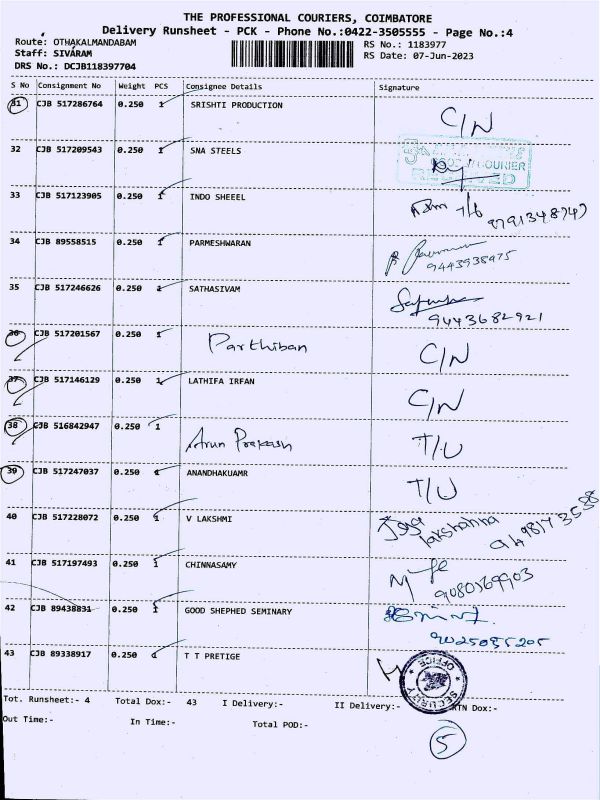 THE PROFESSIONAL COURIERS, COIMBATORE
Delivery Runsheet - PCK - Phone No.:0422-3505555 - Page No.:4
Route: OTHAKALMANDABAM RS No.: 1183977
Staff: SIVARAM RS Date: 07-Jun-2023
DRS No.: DCJB118397704
S No Consignment No Weight PCS Consignee Details Signature
31 CJB 517286764 0.250 1 SRISHTI PRODUCTION C/N
32 CJB 517209543 0.250 1 SNA STEELS
COURIER
RECEIVED
33 CJB 517123905 0.250 1 INDO SHEEEL
9791348747
34 CJB 89558515 0.250 1 PARMESHWARAN
9443938975
35 CJB 517246626 0.250 1 SATHASIVAM
9443682921
36 CJB 517201567 0.250 1 Parthiban C/N
37 CJB 517146129 0.250 1 LATHIFA IRFAN C/N
38 CJB 516842947 0.250 1 Arun Prakash T/U
39 CJB 517247037 0.250 1 ANANDHAKUAMR T/U
40 CJB 517228072 0.250 1 V LAKSHMI
41 CJB 517197493 0.250 1 CHINNASAMY
9080769903
42 CJB 89438831 0.250 1 GOOD SHEPHED SEMINARY
9025085205
43 CJB 89338917 0.250 1 T T PRETIGE
SECURITY OFFICE
Tot. Runsheet:- 4 Total Dox:- 43 I Delivery:- II Delivery:- RTN Dox:-
Out Time:- In Time:- Total POD:-
5